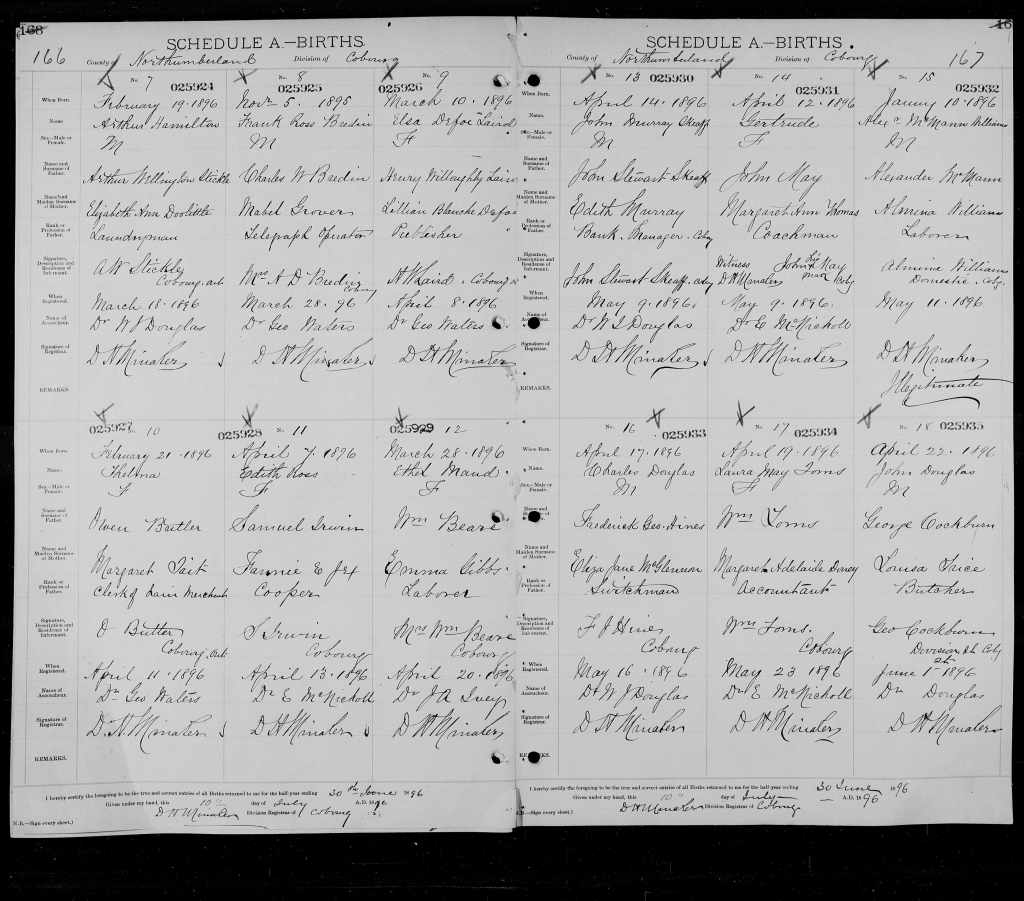 168
SCHEDULE A.—BIRTHS.
166 County of Northumberland Division of Cobourg
No. 7 025924 No. 8 025925 No. 9 025926
When Born. February 19·1896 Novr 5·1895 March 10·1896
Name Arthur Hamilton Frank Ross Bredin Elsa Defoe Laird
Sex—Male or Female. M M F
Name and Surname of Father. Arthur Wellington Stickle Charles W Bredin Henry Willoughby Laird
Name and Maiden Surname of Mother. Elizabeth Ann Doolittle Mabel Grover Lillian Blanche Defoe
Rank or Profession of Father. Laundryman Telegraph Operator Publisher
Signature, Description and Residence of Informant. A W Stickle Cobourg, Ont Mrs A D Bredin Cobourg H W Laird. Cobourg
When Registered. March 18·1896 March 28·96 April 8·1896
Name of Accoucheur. Dr W J Douglas Dr Geo Waters Dr Geo Waters
Signature of Registrar. D H Minaker D H Minaker D H Minaker
REMARKS.
025927 No. 10 025928 No. 11 025929 12
When Born. February 21·1896 April 7·1896 March 28·1896
Name. Thelma Edith Ross Ethel Maud
Sex—Male or Female. F F F
Name and Surname of Father. Owen Butler Samuel Irwin Wm Beare
Name and Maiden Surname of Mother. Margaret Tait Fannie E Jex Emma Gibbs
Rank or Profession of Father. Clerk of Merchant Cooper Laborer
Signature, Description and Residence of Informant. O Butler Cobourg, Ont S Irwin Cobourg Mrs Wm Beare Cobourg
When Registered. April 11·1896 April 13·1896 April 20·1896
Name of Accoucheur. Dr Geo Waters Dr E McNicholl Dr J A Ivey
Signature of Registrar. D H Minaker D H Minaker D H Minaker
REMARKS.
I hereby certify the foregoing to be the true and correct entries of all Births returned to me for the half-year ending 30th June 1896
Given under my hand, this 10th day of July A.D. 1896
D H Minaker Division Registrar of Cobourg
N.B.—Sign every sheet.)
16
SCHEDULE A.—BIRTHS.
County of Northumberland Division of Cobourg 167
No. 13 025930 No. 14 025931 No. 15 025932
When Born. April 14·1896 April 12·1896 January 10·1896
Name. John Murray Skeaff Gertrude Alexr McMann Williams
Sex—Male or Female. M F M
Name and Surname of Father. John Stewart Skeaff John May Alexander McMann
Name and Maiden Surname of Mother. Edith Murray Margaret Ann Thomas Almina Williams
Rank or Profession of Father. Bank Manager. Cobg Coachman Laborer
Signature, Description and Residence of Informant. John Stewart Skeaff. Cobg Witness D H Minaker John his X mark May Cobg Almina Williams Domestic. Cobg.
When Registered. May 9·1896. May 9·1896. May 11·1896
Name of Accoucheur. Dr W J Douglas Dr E McNicholl
Signature of Registrar. D H Minaker D H Minaker D H Minaker
REMARKS. Illegitimate
No. 16 025933 No. 17 025934 No. 18 025935
When Born. April 17·1896 April 19·1896 April 22·1896
Name. Charles Douglas Laura May Toms John Douglas
Sex—Male or Female. M F M
Name and Surname of Father. Frederick Geo. Hines Wm Toms George Cockburn
Name and Maiden Surname of Mother. Eliza Jane McGlennon Margaret Adelaide Disney Louisa Price
Rank or Profession of Father. Switchman Accountant Butcher
Signature, Description and Residence of Informant. F J Hines Cobourg Wm Toms. Cobourg Geo Cockburn Division St Cobg
When Registered. May 16·1896 May 23 1896 June 1st 1896
Name of Accoucheur. Dr W J Douglas Dr E McNicholl Dr Douglas
Signature of Registrar. D H Minaker D H Minaker D H Minaker
REMARKS.
I hereby certify the foregoing to be the true and correct entries of all Births returned to me for the half-year ending 30 June 1896
Given under my hand, this 10th day of July A.D. 1896
D H Minaker Division Registrar of Cobourg
N.B.—Sign every sheet.)